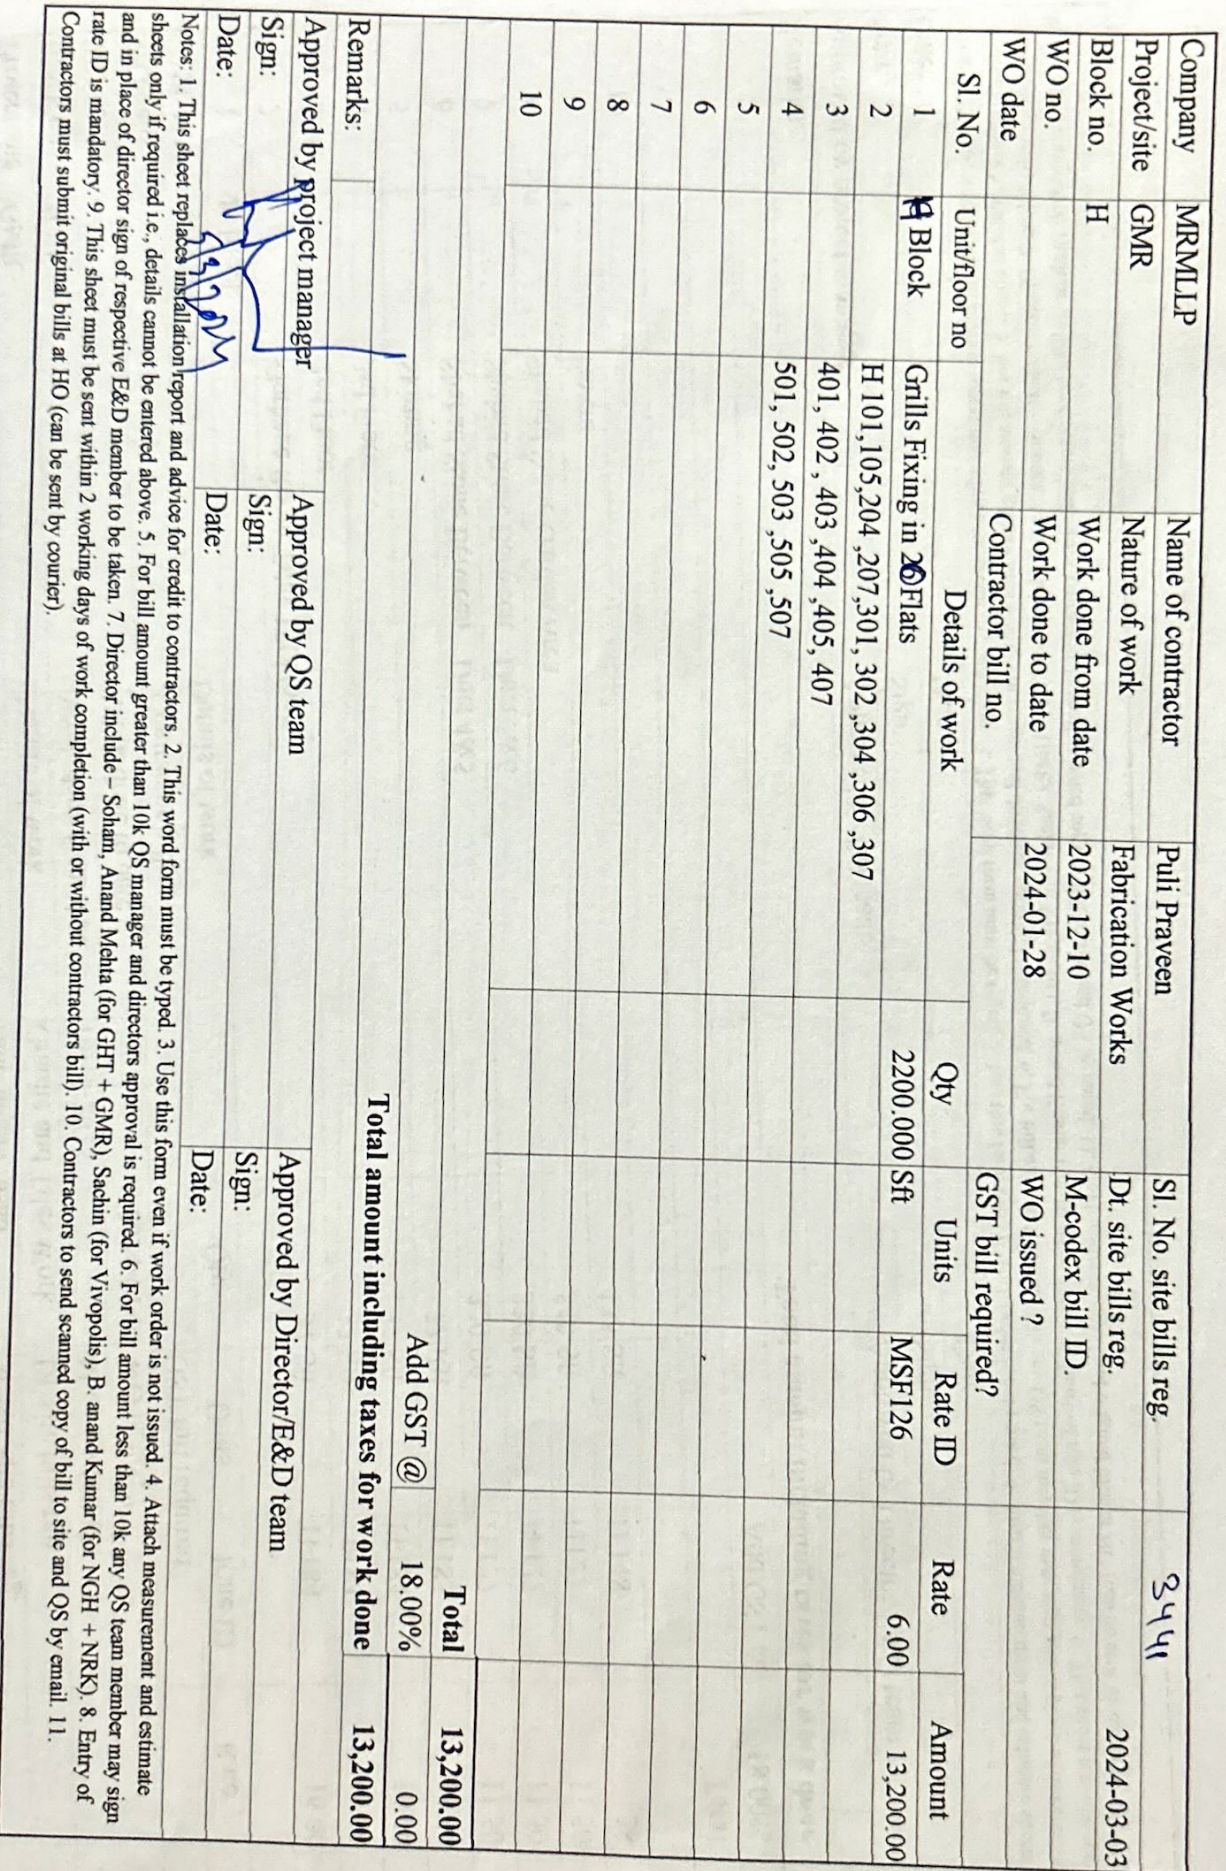 Company MRMLLP Name of contractor Puli Praveen Sl. No. site bills reg. 3441
Project/site GMR Nature of work Fabrication Works Dt. site bills reg. 2024-03-03
Block no. H Work done from date 2023-12-10 M-codex bill ID.
WO no. Work done to date 2024-01-28 WO issued ?
WO date Contractor bill no. GST bill required?
Sl. No. Unit/floor no Details of work Qty Units Rate ID Rate Amount
1 H Block Grills Fixing in 20 Flats 2200.000 Sft MSF126 6.00 13,200.00
2 H 101,105,204 ,207,301, 302 ,304 ,306 ,307
3 401, 402 , 403 ,404 ,405, 407
4 501, 502, 503 ,505 ,507
5
6
7
8
9
10
Total 13,200.00
Add GST @ 18.00% 0.00
Remarks: Total amount including taxes for work done 13,200.00
Approved by project manager Approved by QS team Approved by Director/E&D team
Sign: Sign: Sign:
Date: Date: Date:
Notes: 1. This sheet replaces installation report and advice for credit to contractors. 2. This word form must be typed. 3. Use this form even if work order is not issued. 4. Attach measurement and estimate
sheets only if required i.e., details cannot be entered above. 5. For bill amount greater than 10k QS manager and directors approval is required. 6. For bill amount less than 10k any QS team member may sign
and in place of director sign of respective E&D member to be taken. 7. Director include – Soham, Anand Mehta (for GHT + GMR), Sachin (for Vivopolis), B. anand Kumar (for NGH + NRK). 8. Entry of
rate ID is mandatory. 9. This sheet must be sent within 2 working days of work completion (with or without contractors bill). 10. Contractors to send scanned copy of bill to site and QS by email. 11.
Contractors must submit original bills at HO (can be sent by courier).